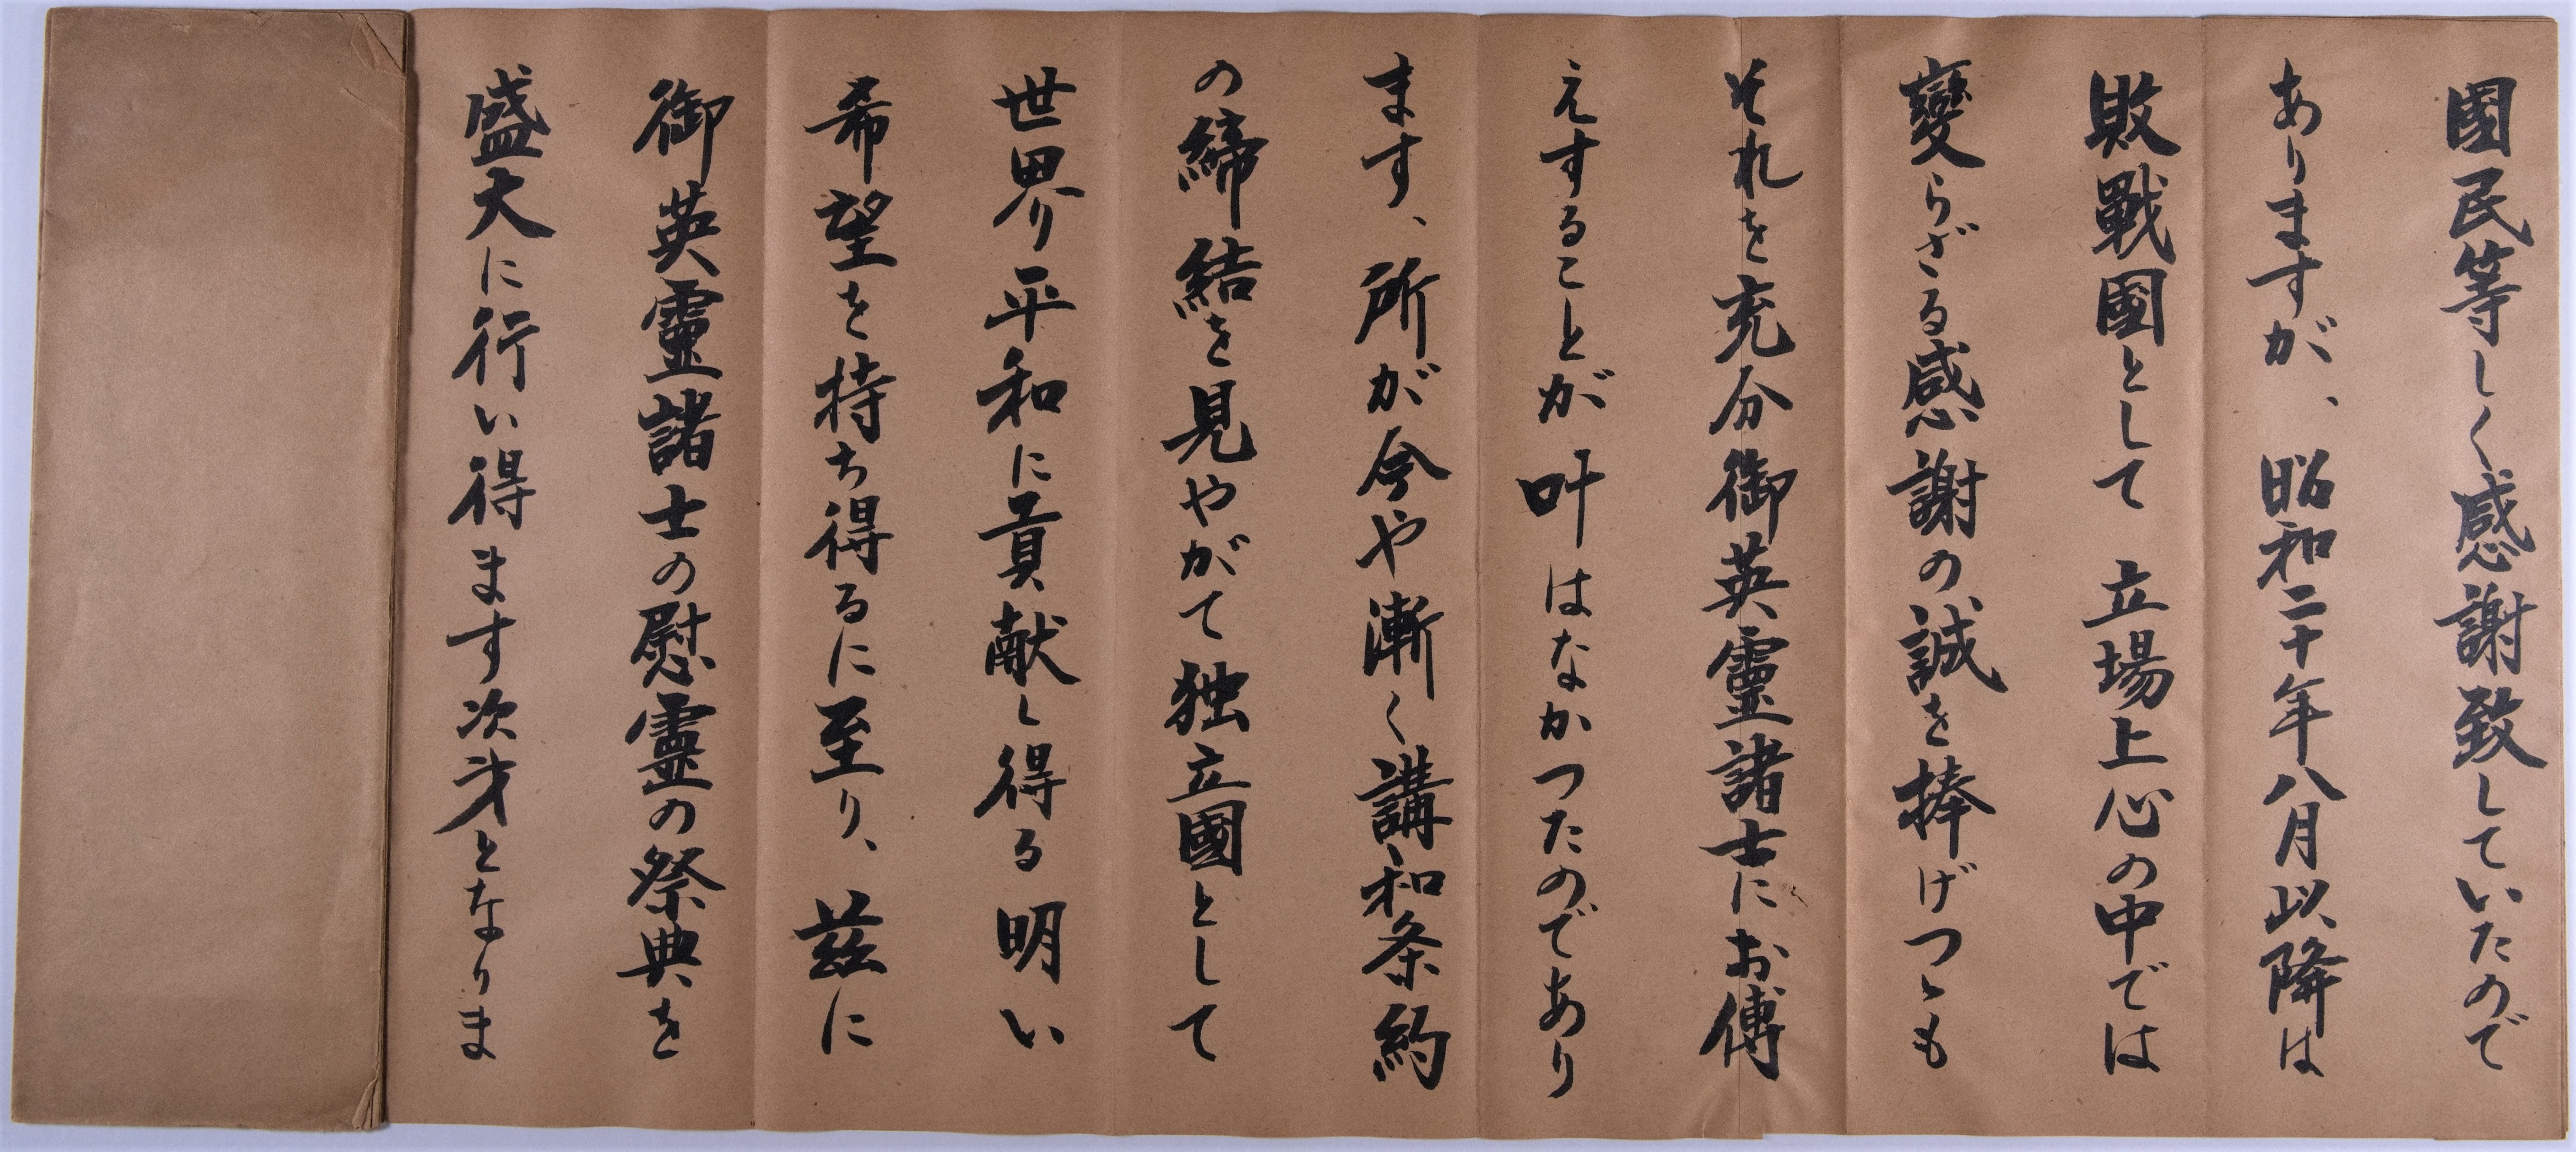 國民等しく感謝致していたので
ありますが、昭和二十年八月以降は
敗戰國として立場上心の中では
變らざる感謝の誠を捧げつゝも
それを充分御英靈諸士にお傳
えすることが叶はなかつたのであり
ます、所が今や漸く講和条約
の締結を見やがて独立國として
世界平和に貢献し得る明い
希望を持ち得るに至り、茲に
御英靈諸士の慰霊の祭典を
盛大に行い得ます次才となりま